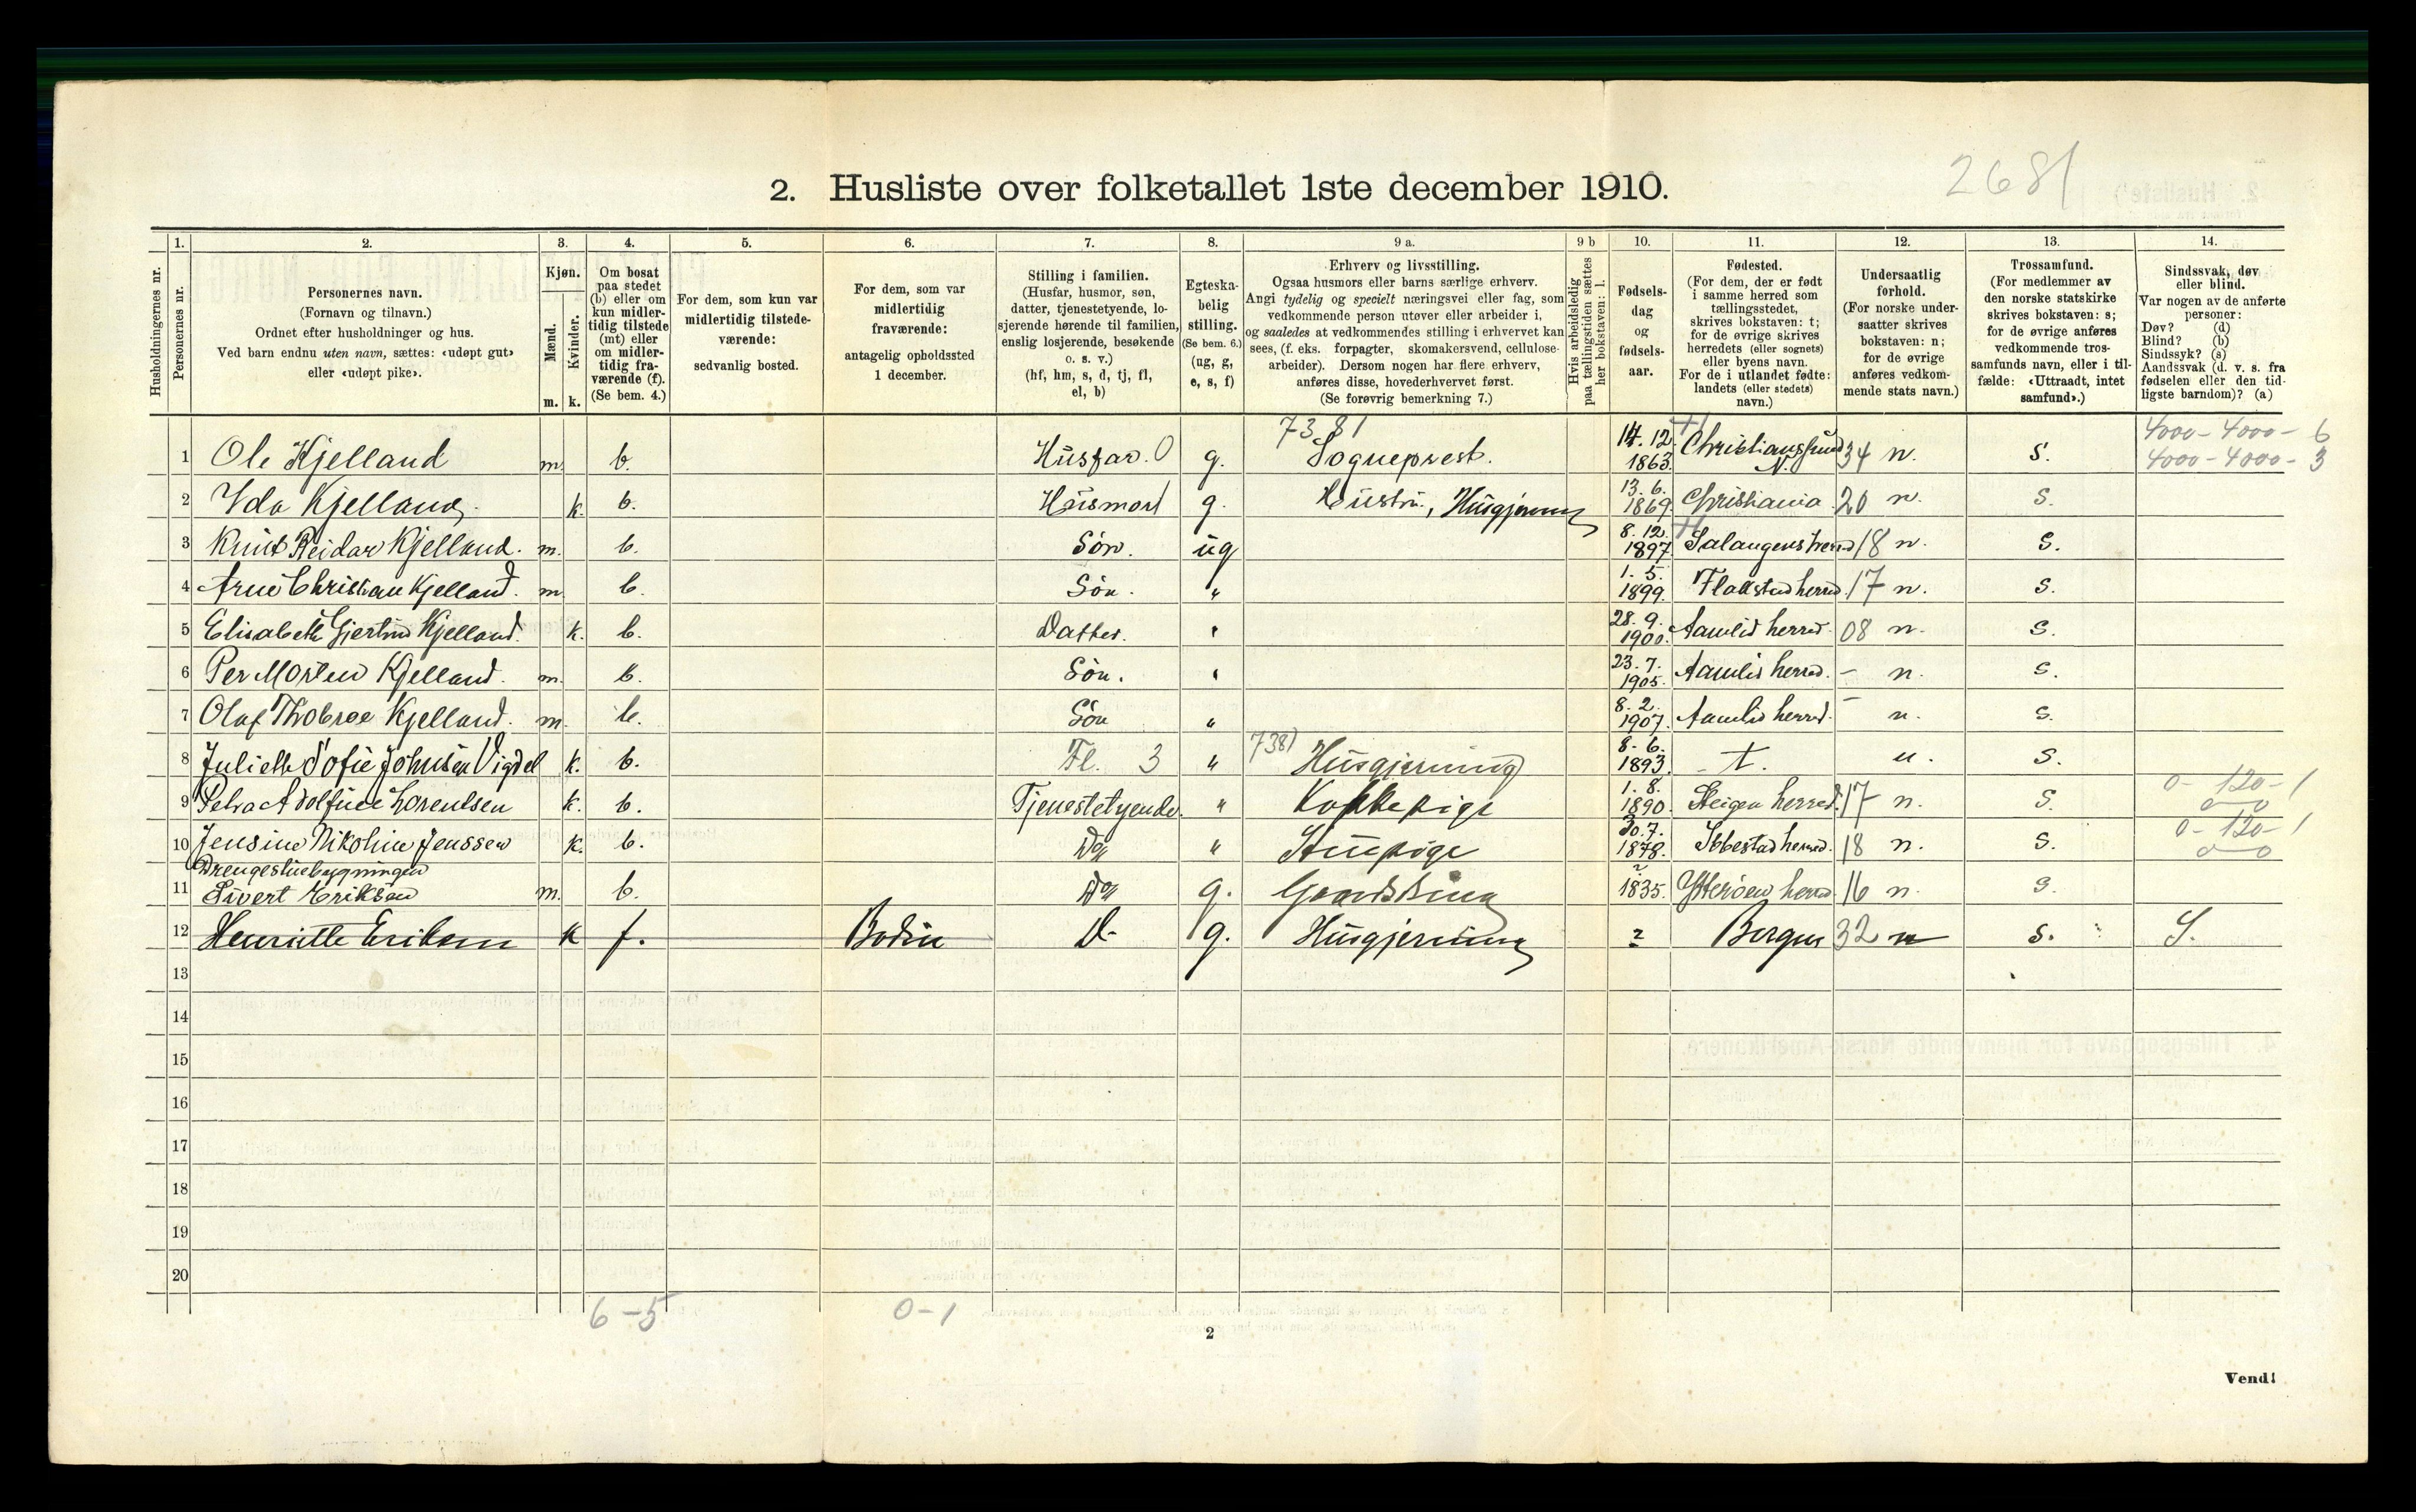 2681
2. Husliste over folketallet 1ste december 1910.
1. 2. 3. 4. 5. 6. 7. 8. 9 a. 9 b 10. 11. 12. 13. 14.
Husholdningernes nr.
Personernes nr.
Personernes navn.
(Fornavn og tilnavn.)
Ordnet efter husholdninger og hus.
Ved barn endnu uten navn, sættes: «udøpt gut»
eller «udøpt pike».
Kjøn.
Mænd.
Kvinder.
m. k.
Om bosat
paa stedet
(b) eller om
kun midler-
tidig tilstede
(mt) eller
om midler-
tidig fra-
værende (f).
(Se bem. 4.)
For dem, som kun var
midlertidig tilstede-
værende:
sedvanlig bosted.
For dem, som var
midlertidig
fraværende:
antagelig opholdssted
1 december.
Stilling i familien.
(Husfar, husmor, søn,
datter, tjenestetyende, lo-
sjerende hørende til familien,
enslig losjerende, besøkende
o. s. v.)
(hf, hm, s, d, tj, fl,
el, b)
Egteska-
belig
stilling.
(Se bem. 6.)
(ug, g,
e, s, f)
Erhverv og livsstilling.
Ogsaa husmors eller barns særlige erhverv.
Angi tydelig og specielt næringsvei eller fag, som
vedkommende person utøver eller arbeider i,
og saaledes at vedkommendes stilling i erhvervet kan
sees, (f. eks. forpagter, skomakersvend, cellulose-
arbeider). Dersom nogen har flere erhverv,
anføres disse, hovederhvervet først.
(Se forøvrig bemerkning 7.)
Hvis arbeidsledig
paa tællingstiden sættes
her bokstaven: l.
Fødsels-
dag
og
fødsels-
aar.
Fødested.
(For dem, der er født
i samme herred som
tællingsstedet,
skrives bokstaven: t;
for de øvrige skrives
herredets (eller sognets)
eller byens navn.
For de i utlandet fødte:
landets (eller stedets)
navn.)
Undersaatlig
forhold.
(For norske under-
saatter skrives
bokstaven: n;
for de øvrige
anføres vedkom-
mende stats navn.)
Trossamfund.
(For medlemmer av
den norske statskirke
skrives bokstaven: s;
for de øvrige anføres
vedkommende tros-
samfunds navn, eller i til-
fælde: «Uttraadt, intet
samfund».)
Sindssvak, døv
eller blind.
Var nogen av de anførte
personer:
Døv? (d)
Blind? (b)
Sindssyk? (s)
Aandssvak (d. v. s. fra
fødselen eller den tid-
ligste barndom)? (a)
1 Ole Kjelland m. b. Husfar. 0 g. 7381 Sogneprest. 14.12. 1863. Christianssund N. 34 n. s. 4000-4000-6 4000-4000-3
2 Yda Kjelland. k. b. Husmor g. Hustru, Husgjerning 13.6. 1869. Christiania 20 n. s.
3 Knut Reidar Kjelland. m. b. Søn. ug 8.12. 1897. Salangens herred 18 n. s.
4 Arne Christian Kjelland. m. b. Søn. " 1.5. 1899. Flakstad herred. 17 n. s.
5 Elisabeth Gjertrud Kjelland. k. b. Datter. " 28.9. 1900. Aamlid herred. 08 n. s.
6 Per Morten Kjelland. m. b. Søn. " 23.7. 1905. Aamlid herred. - n. s.
7 Olaf Thobroe Kjelland. m. b. Søn " 8.2. 1907. Aamlid herred. - n. s.
8 Julielle Sofie Johnsen Vigdel k. b. Fl. 3 " 7381 Husgjerning 8.6. 1893. t. n. s.
9 Petra Adolfine Lorentsen k. b. Tjenestetyende. " Kokkepige 1.8. 1890. Steigen herred. 17 n. s. 0-120-1 0-0
10 Jensine Nikoline Jenssen k. b. Do " Stuepige 30.7. 1878. Ibbestad herred. 18 n. s. 0-120-1 0-0
Drengestuebygningen
11 Sivert Eriksen m. b. Do g. Gaardsdreng ? 1835. Ytterøen herred. 16 n. s.
12 Henriette Eriksen k f. Bodin D- g. Husgjerning ? Bergen 32 n s. S.
13
14
15
16
17
18
19
20
6-5 0-1
2
Vend!